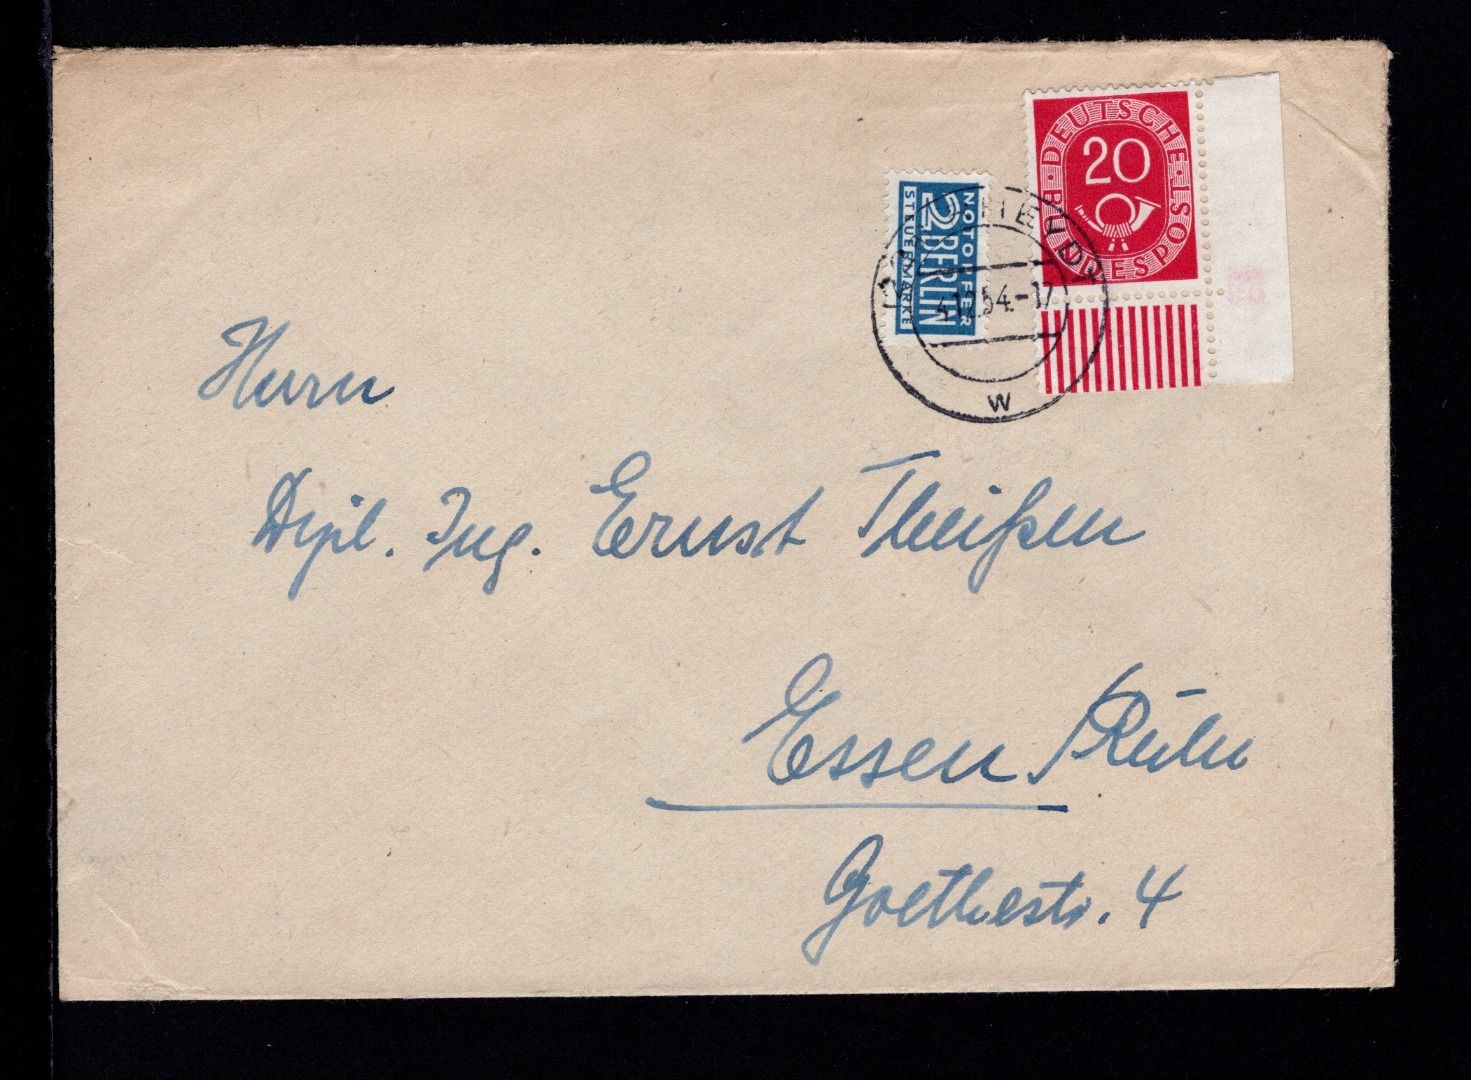 DEUTSCHE BUNDESPOST
20
NOTOPFER
2 BERLIN
STEUERMARKE
4.12.54.-17
w
Herrn
Dipl. Ing. Ernst Theißen
Essen / Ruhr
Goethestr. 4